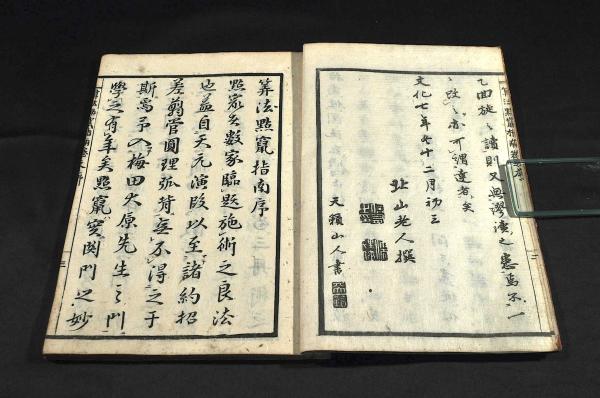 乙回旋之諸則又無謬漶之患焉不一
之改之亦可謂達者矣
文化七年冬十二月初三
北山老人撰
天賴山人書
算法點竄指南序
點竄矣数家臨題施術之良法
也蓋自天元演段以至諸約招
差剪管圓理弧背無不得之于
斯焉予入梅田大原先生之門
學之有年矣點竄實関門之妙